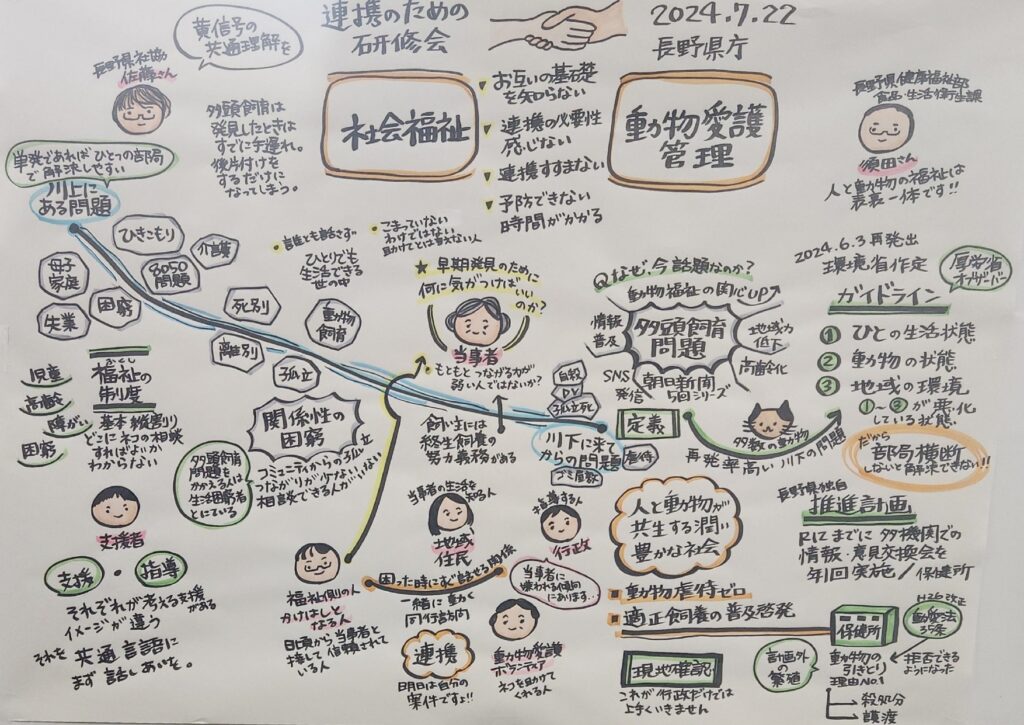 黄信号の
共通理解を
連携のための
研修会
2024.7.22
長野県庁
長野県社協
佐藤さん
多頭飼育は
発見したときは
すでに手遅れ。
後片付けを
するだけに
なってしまう。
社会福祉
お互いの基礎
を知らない
連携の必要性
感じない
連携すすまない
予防できない
時間がかかる
動物愛護
管理
長野県健康福祉部
食品・生活衛生課
須田さん
人と動物の福祉は
表裏一体です!!
単発であれば ひとつの部局
で解決しやすい
川上に
ある問題
ひきこもり
8050
問題
介護
母子
家庭
困窮
失業
死別
離別
動物
飼育
孤立
誰とも話さず
ひとりでも
生活できる
世の中
こまっていない
わけではない
助けてとは言えない人
早期発見のために
何に気がつけばいい
のか?
当事者
もともとつながる力が
弱い人ではないか?
Qなぜ、今話題なのか?
動物福祉の関心UP
情報
普及
多頭飼育
問題
地域力
低下
高齢化
SNS
発信
朝日新聞
5回シリーズ
2024.6.3 再発出
環境省作定
厚労省
オブザーバー
ガイドライン
① ひとの生活状態
② 動物の状態
③ 地域の環境
①~③が悪化
している状態
だから
部局横断
しないと解決できない!!
児童
高齢
障がい
困窮
ふくし
福祉の
制度
基本 縦割り
どこにネコの相談
すればよいか
わからない
関係性の
困窮
コミュニティからの孤立
つながりが少ない・ない
相談できる人がいない
多頭飼育
問題を
かかえる人は
生活困窮者
ととにている
飼い主には
終生飼養の
努力義務がある
自殺
DV
孤立死
川下に来て
からの問題
虐待
ゴミ屋敷
定義
多数の動物
再発率高い川下の問題
支援者
支援・指導
それぞれが考える支援
がある
イメージが違う
それを 共通言語に
まず 話しあいを。
福祉側の人
かけはしと
なる人
日頃から当事者と
接して信頼されて
いる人
当事者の生活を
知る人
地域
住民
指導する人
行政
困った時にすぐ話せる関係
一緒に動く
同行訪問
連携
明日は自分の
案件ですよ!!
当事者に
嫌われる傾向
にあります…
動物愛護
ボランティア
ネコを助けて
くれる人
人と動物が
共生する潤い
豊かな社会
動物虐待ゼロ
適正飼養の普及啓発
長野県独自
推進計画
R12までに 多機関での
情報・意見交換会を
年1回実施/保健所
現地確認
これが行政だけでは
上手くいきません
計画外
の繁殖
保健所
H26改正
動愛法
35条
動物の
引きとり
理由No.1
拒否できる
ようになった
殺処分
譲渡